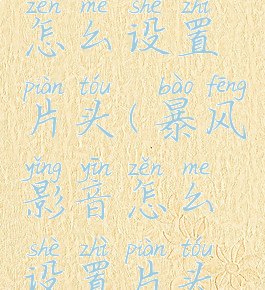 zěn me shè zhì
怎么设置
piàn tóu bào fēng
片头(暴风
yǐng yīn zěn me
影音怎么
shè zhì piàn tóu
设置片头